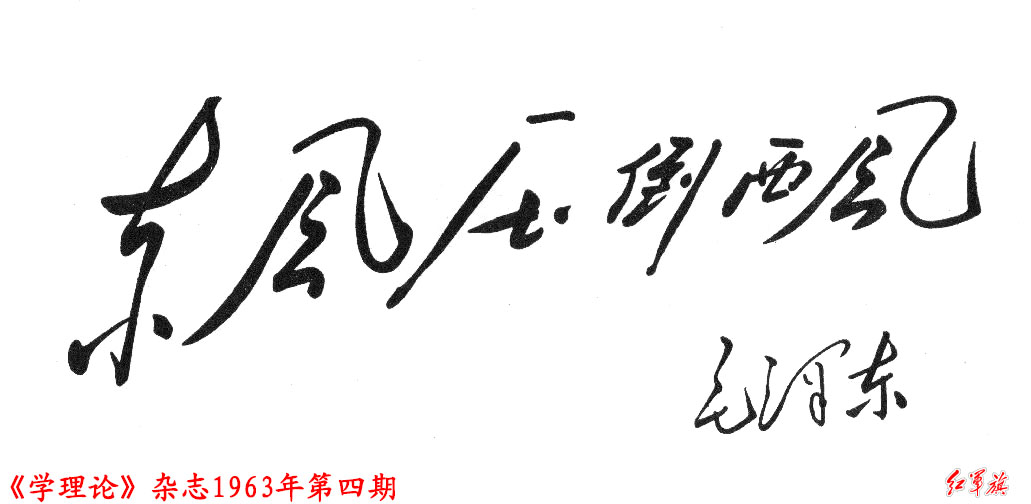 东风压倒西风
毛泽东
《学理论》杂志1963年第四期
红军旗